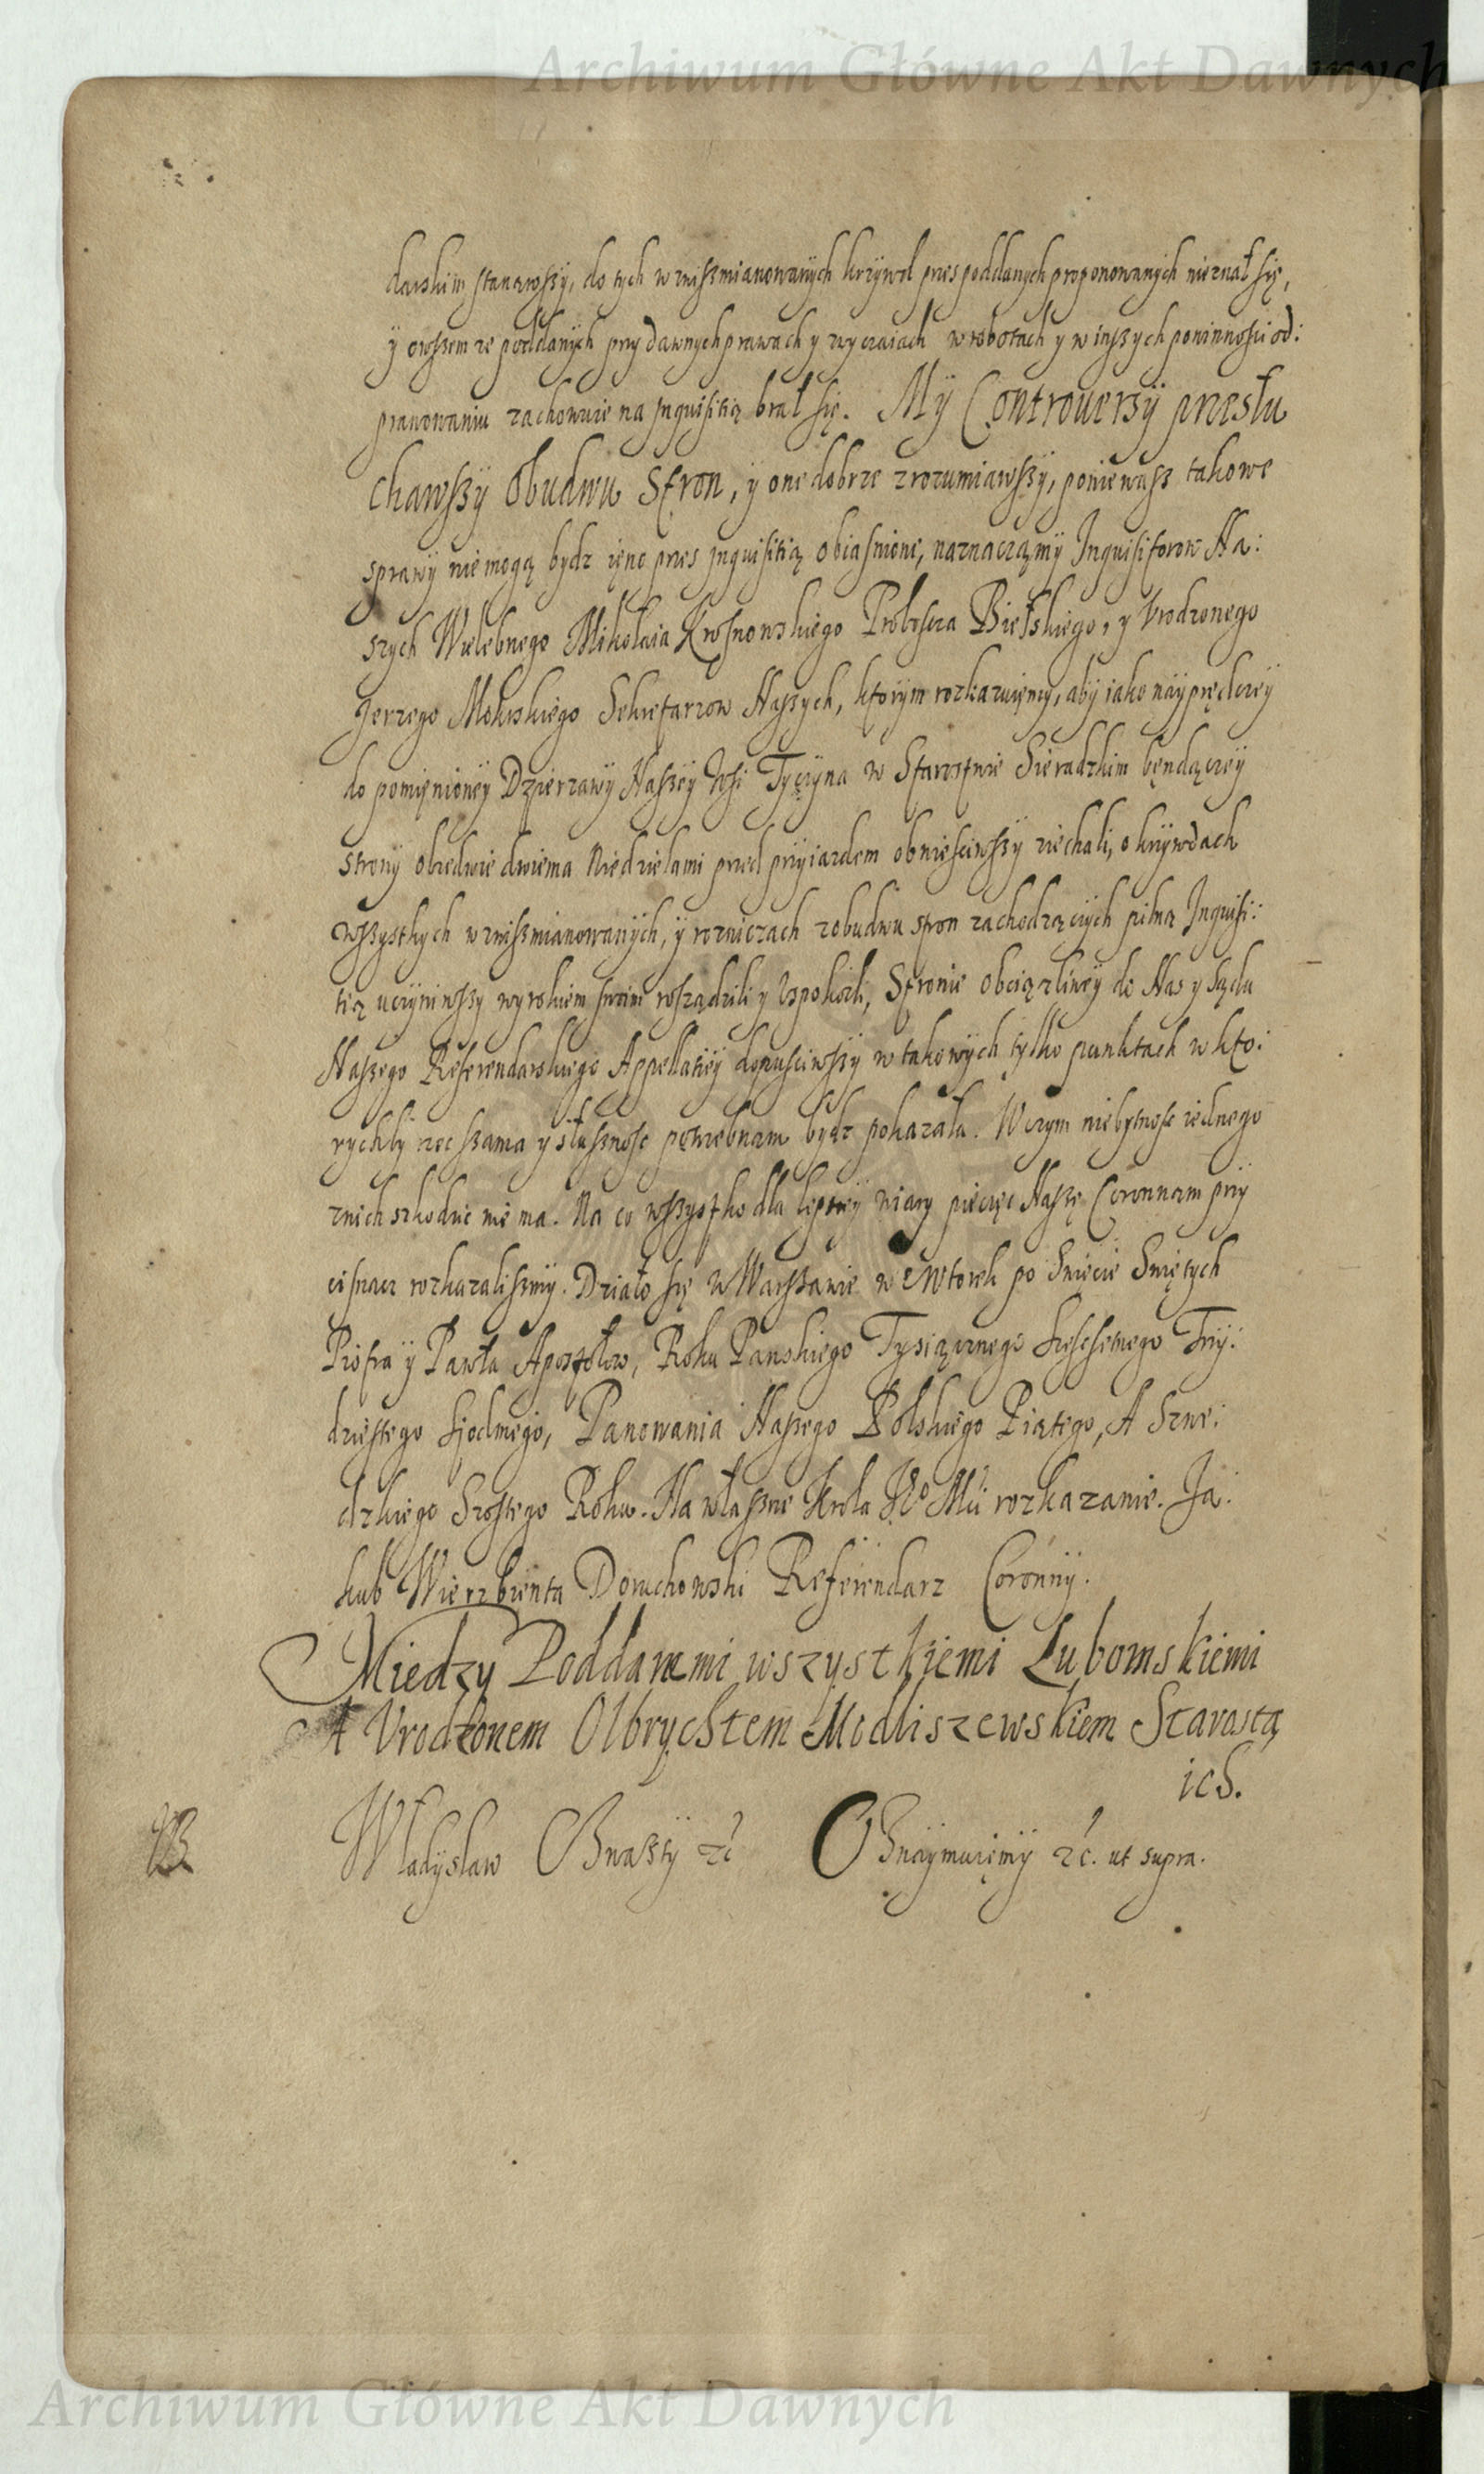 Archiwum Główne Akt Dawnych
darskim stanąwszÿ, do tych wzniszmianowanÿch krzywd przes poddanych proponowanÿch nieznał się,
ÿ owszem ze poddanÿch przÿ dawnych prawach y zwyczaiach w robotach y w inszych powinnosci od:
prawowaniu zachowuie na jnquisitią brał się. Mÿ Controuersÿi przesłu
chawszÿ Obudwu Stron, ÿ one dobrze zrozumiawszÿ, poniewasz takowe
sprawÿ niemogą bydz ięno przes jnquisitią obiasnione, naznaczamÿ Inquisitorow Na:
szych Wielebnego Mikołaia Krosnowskiego Proboscza Bielskiego, y Vrodzonego
Jerzego Mokrskiego Sekretarzow Naszych, ktorÿm rozkazuięmy, abÿ iako nayprędczeÿ
do pomięnioneÿ Dzierzawÿ Naszeÿ Wsi Tyczyna w Starostwie Sieradzkim będączeÿ
stronÿ obiedwie dwiema Niedzielami przed przÿiazdem obwiesciwszÿ ziechali, o krzÿwdach
wszystkych wzniszmianowanÿch, ÿ rozniczach z obudwu stron zachodzącÿch pilną Inquisi:
tią uczÿniwszÿ wyrokiem swoim rossądzili y Vspokoili, Stronie obciązliweÿ do Nas y Sądu
Naszego Referendarskiego Appellatieÿ dopusciwszÿ w takowÿch tylko punktach w kto:
rychbÿ rzecz sama y słusznosc potrzebnam bydz pokazała. W czym niebytnosc iednego
znich szkodzic nie ma. Na co wszystko dla lepszeÿ wiary pieczęc Naszę Coronnam przÿ
cisnacz rozkazalismÿ. Działo się w Warszawie w Wtorek po Swięcie Swiętych
Piotra ÿ Pawła Apostołow, Roku Panskiego Tysiącznego Szescsetnego Trzÿ:
dziestego Siodmego, Panowania Naszego Polskiego Piątego, A Szwe:
dzkiego Szostego Roku. Na własne Krola Jeº Mci rozkazanie. Ja:
kub Wierzbienta Doruchowski Referendarz Coronnÿ.
Miedzy Poddanemi wszystkiemi Lubomskiemi
A Vrodzonem Olbrychtem Modliszewskiem Starostą
ich.
Władysław Oznaszÿ etc Oznaÿmuięmÿ etc. ut supra.
Archiwum Główne Akt Dawnych